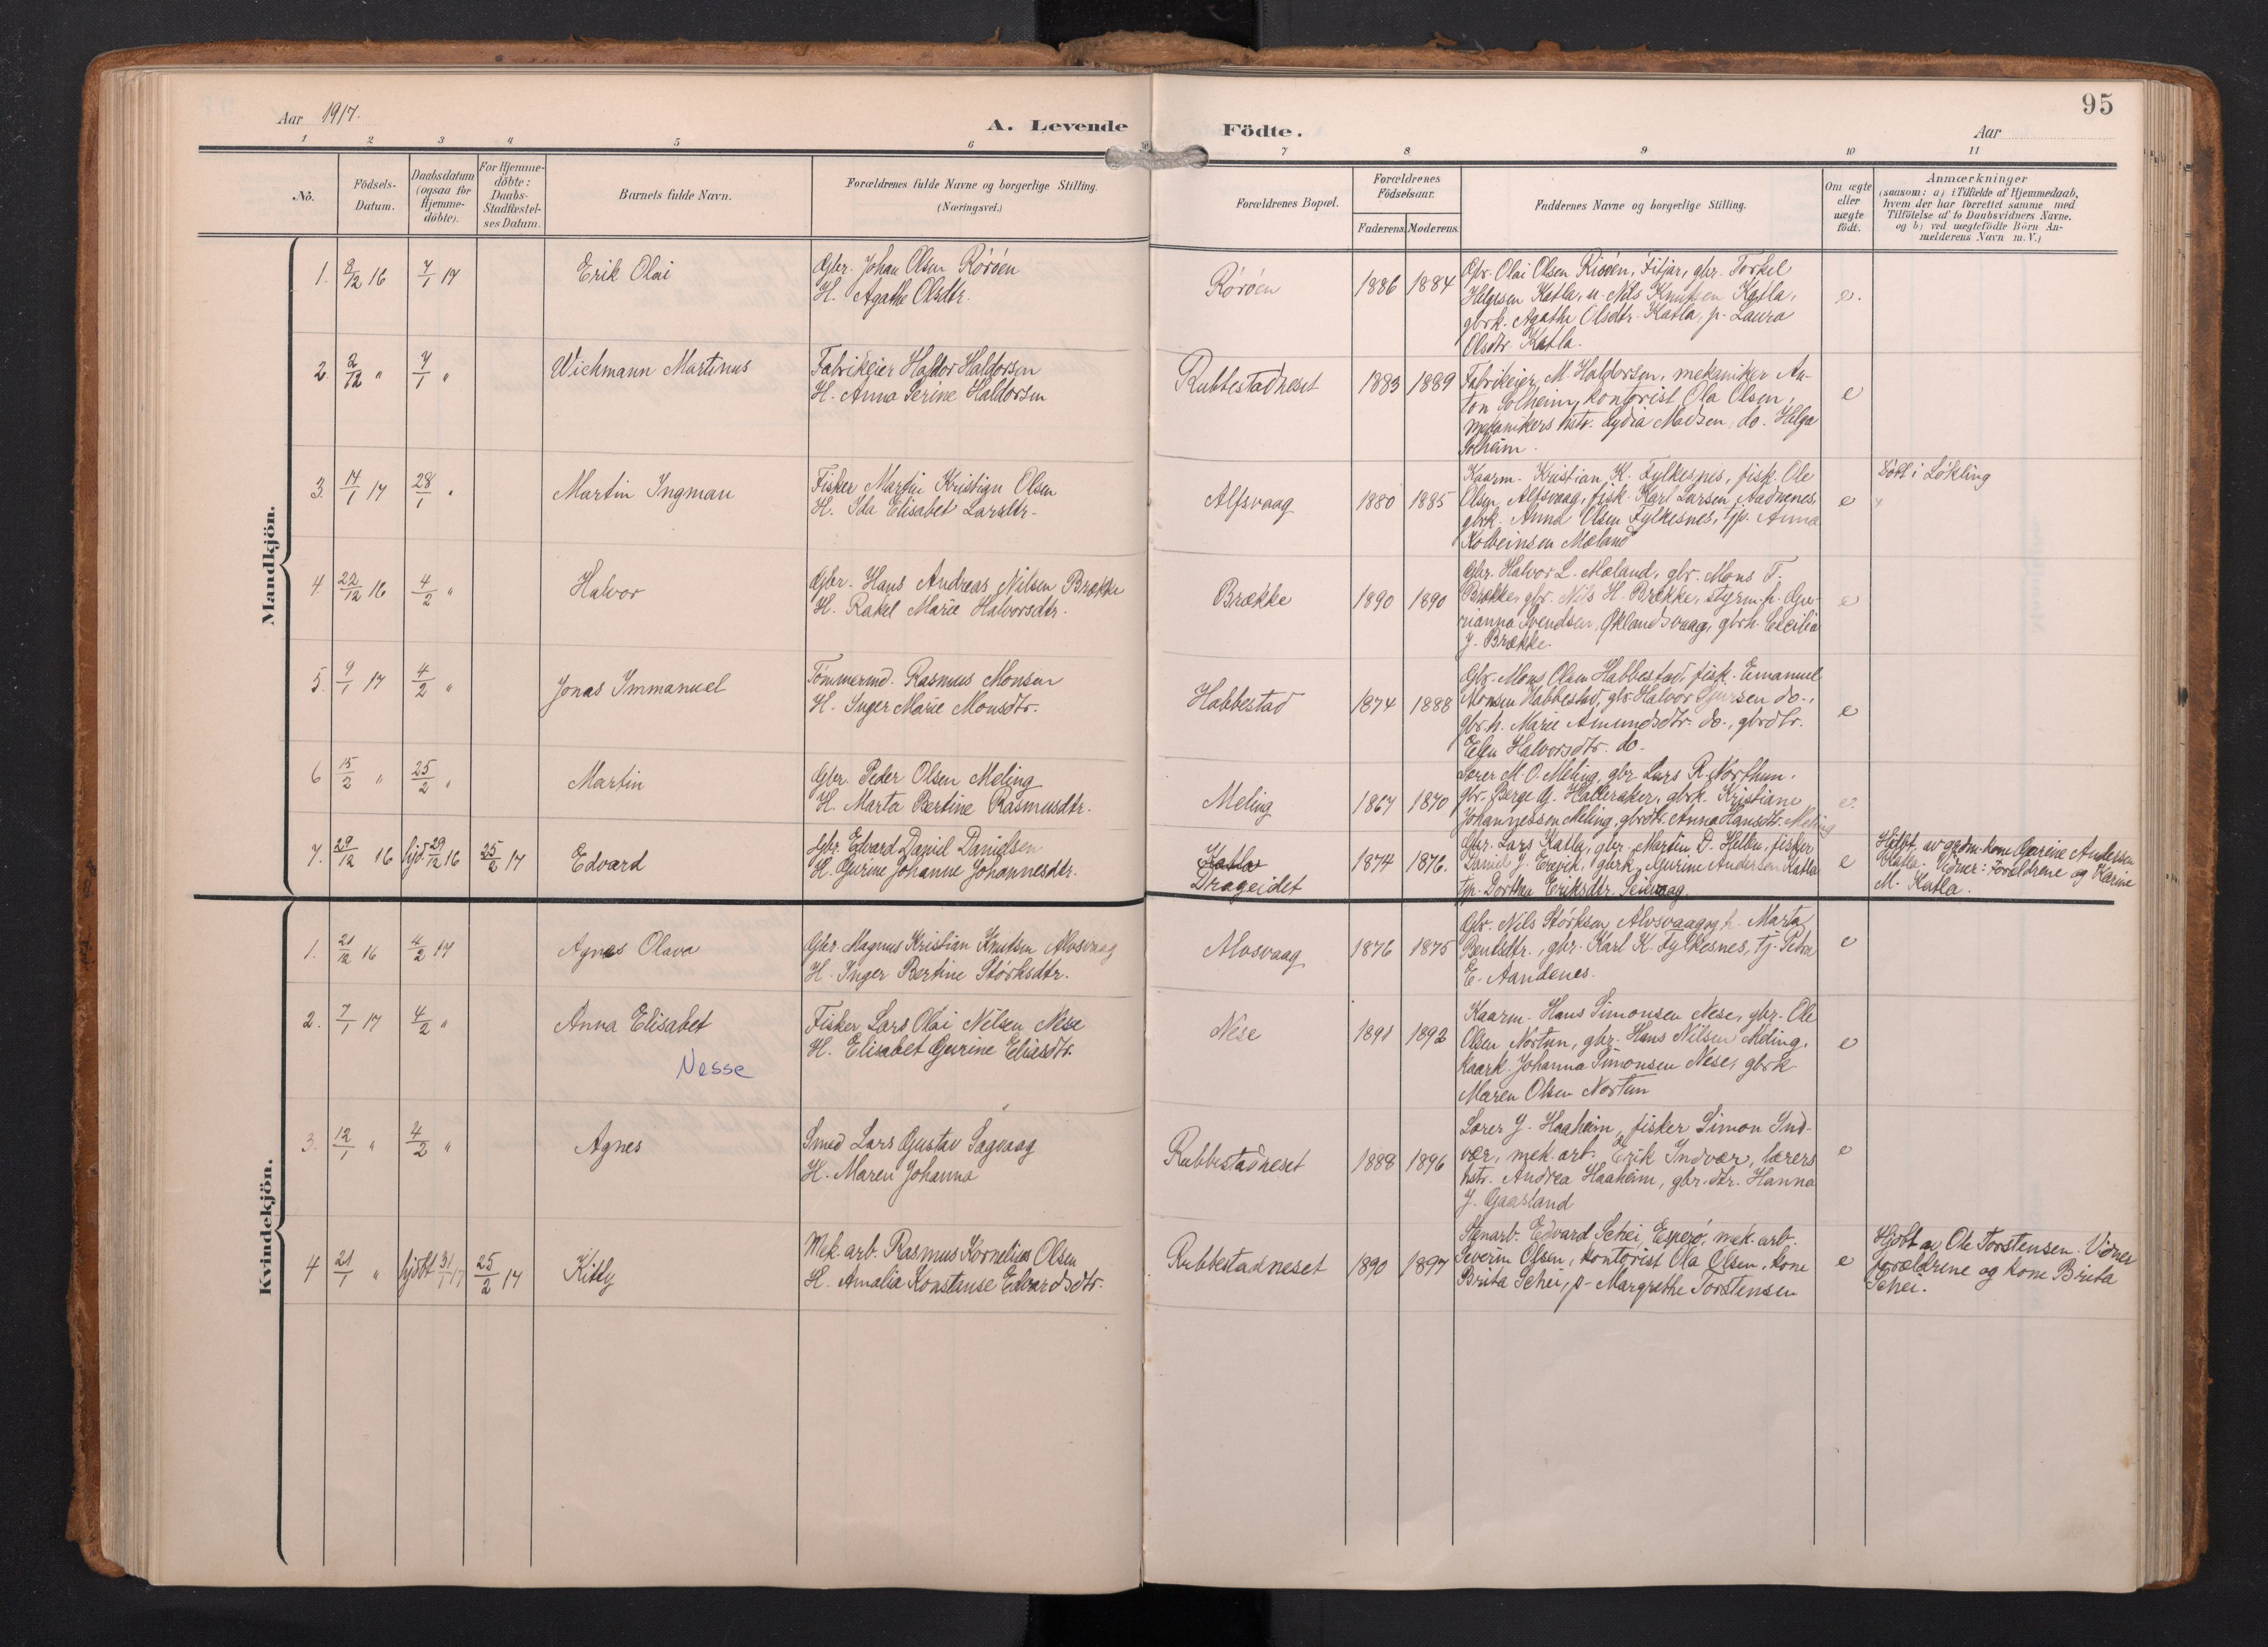 95
Aar 1917.
A. Levende Födte.
Aar
1 2 3 4 5 6 7 8 9 10 11
No.
Födsels-
Datum.
Daabsdatum
(ogsaa for
Hjemme-
döbte).
For Hjemme-
döbte:
Daabs-
Stadfæstel-
ses Datum.
Barnets fulde Navn.
Forældrenes fulde Navne og borgerlige Stilling.
(Næringsvei.)
Forældrenes Bopæl.
Forældrenes
Födselsaar.
Faderens. Moderens.
Faddernes Navne og borgerlige Stilling.
Om ægte
eller
uægte
födt.
Anmærkninger
(saasom: a) i Tilfælde af Hjemmedaab,
hvem der har forrettet samme med
Tilföielse af to Daabsvidners Navne.
og b) ved uægtefödte Börn An-
melderens Navn m. V.)
Mandkjön.
1. 9/12 16 7/1 17 Erik Olai
Gbr. Johan Olsen Rörøen
H. Agathe Olsdtr.
Rörøen 1886 1884
Gbr. Olai Olsen Risøen, Fitjar, gbr. Torkel
Helgesen Katla, u. Nils Knutsen Katla,
gbrk. Agathe Olsdtr. Katla, p. Laura
Olsdtr. Katla.
e.
2. 2/12 " 7/1 " Wichmann Martinus
Fabrikeier Haldor Haldorsen
H. Anna Serine Haldorsen
Rubbestadneset 1883 1889
Fabrikeier M. Haldorsen, mekaniker An-
ton Solheim, kontorist Ola Olsen,
mekanikers hstr. Lydia Madsen, do. Helga
Solheim.
e
3. 14/1 17 28/1 " Martin Ingman
Fisker Martin Kristian Olsen
H. Ida Elisabet Larsdtr.
Alfsvaag 1880 1885
Kaarm. Kristian K. Fylkesnes, fisk. Ole
Olsen, Alfsvaag, fisk. Karl Larsen, Aadnenes,
gbrk. Anna Olsen Fylkesnes, tjp. Anna
Kolbeinsen Mæland
e
Döbt i Lökling
4. 22/12 16 4/2 " Halvor
Gbr. Hans Andreas Nilsen Brække
H. Rakel Marie Halvorsdtr.
Brække 1890 1890
Gbr. Halvor L. Mæland, gbr. Mons T.
Brække, gbr. Nils H. Brække, styrm. h. Gu-
rianna Svendsen, Øklandsvaag, gbrh. Cecilia
J. Brække.
e
5. 9/1 17 4/2 " Jonas Immanuel
Tömmermd. Rasmus Monsen
H. Inger Marie Monsdtr.
Habbestad 1874 1888
Gbr. Mons Olsen Habbestad, fisk. Emanuel
Monsen Habbestad, gbr. Halvor do.,
gbr. h. Marie Amundsdtr. do., gbrdtr.
Elen Halvorsdtr. do.
e
6 15/2 " 25/2 " Martin
Gbr. Peder Olsen Meling
H. Marta Bertine Rasmusdtr.
Meling 1867 1870
Lærer M. O. Meling, gbr. Lars R. Northun,
gbr. Berge G. Halleraker, gbrk. Kristiane
Johannessen Meling, gbrdtr. Anna Hansdtr. Meling
e.
7. 29/12 16 hjd. 29/12 16 25/2 17 Edvard
Gbr. Edvard Daniel Danielsen
H. Gurine Johanne Johannesdtr.
Katla
Drageidet 1874 1876.
Gbr. Lars Katla, gbr. Martin D. Hellen, fisker
Daniel J. Engvik, gbrk. Gurine Andersen Katla
tjp. Dorthea Eriksdtr. Teisvaag.
e
Hjdbt. av gaardm. kone Gurine Andersen
Katla. Vidner: Forældrene og Karine
M. Katla.
Kvindekjön.
1. 21/12 16 4/2 17 Agnes Olava
Gbr. Magnus Kristian Knutsen Alvsvaag
H. Inger Bertine Störksdtr.
Alvsvaag 1876 1875
Gbr. Nils Störksen Alvsvaag og h. Marta
Bentsdtr., gbr. Karl K. Fylkesnes, tj. Petra
E. Aandenes.
e
2. 7/1 17 4/2 " Anna Elisabet
Nesse
Fisker Lars Olai Nilsen Nese
H. Elisabet Gurine Eliasdtr.
Nese 1891 1892
Kaarm. Hans Simonsen Nese, gbr. Ole
Olsen Nortun, gbr. Hans Nilsen Meling,
kaark. Johanna Simonsen Nese, gbrk
Maren Olsen Nortun
e
3. 12/1 " 4/2 " Agnes
Smed Lars Gustav Sagvaag
H. Maren Johanna
Rubbestadneset 1888 1896
Lærer J. Haaheim, fisker Simon Ind-
vær, mek. arb. Erik Indvær, lærers
hstr. Andrea Haaheim, gbr. dtr. Hanna
J. Gaasland
e
4 21/1 " hjdbt 31/1 17 25/2 17 Kitty
Mek. arb. Rasmus Kornelius Olsen
H. Amalia Konstanse Edvardsdtr.
Rubbestadneset 1890 1897
Stenarb. Edvard Schei, Esperö, mek. arb.
Severin Olsen, kontorist Ola Olsen, kone
Brita Schei, p. Margrethe Torstensen
e
Hjdbt a. Ole Torstensen. Vidner
forældrene og kone Brita
Schei.